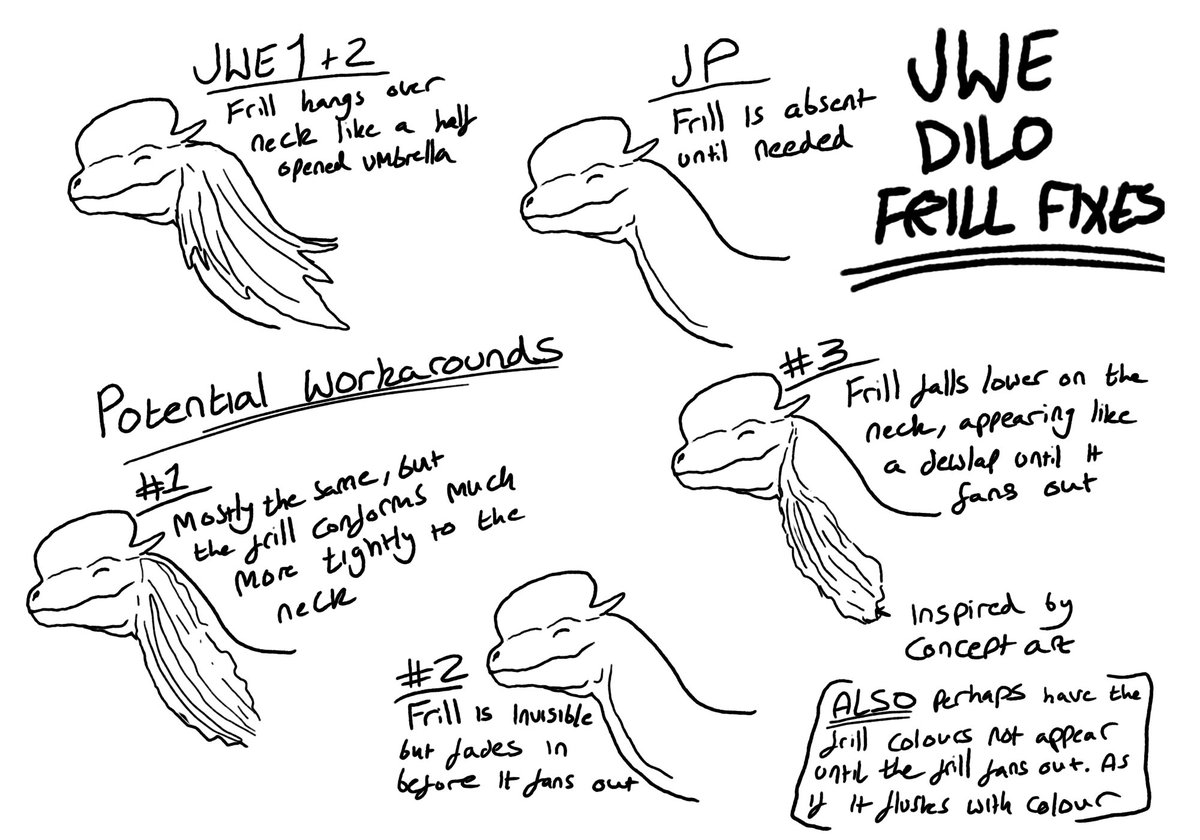 JWE 1 + 2
Frill hangs over
neck like a half
opened umbrella
JP
Frill is absent
until needed
JWE
DILO
FRILL FIXES
Potential Workarounds
#1
Mostly the same, but
the frill conforms much
more tightly to the
neck
#2
Frill is invisible
but fades in
before it fans out
#3
Frill falls lower on the
neck, appearing like
a dewlap until it
fans out
Inspired by
Concept art
ALSO Perhaps have the
frill colours not appear
until the frill fans out. As
if it flushes with colour